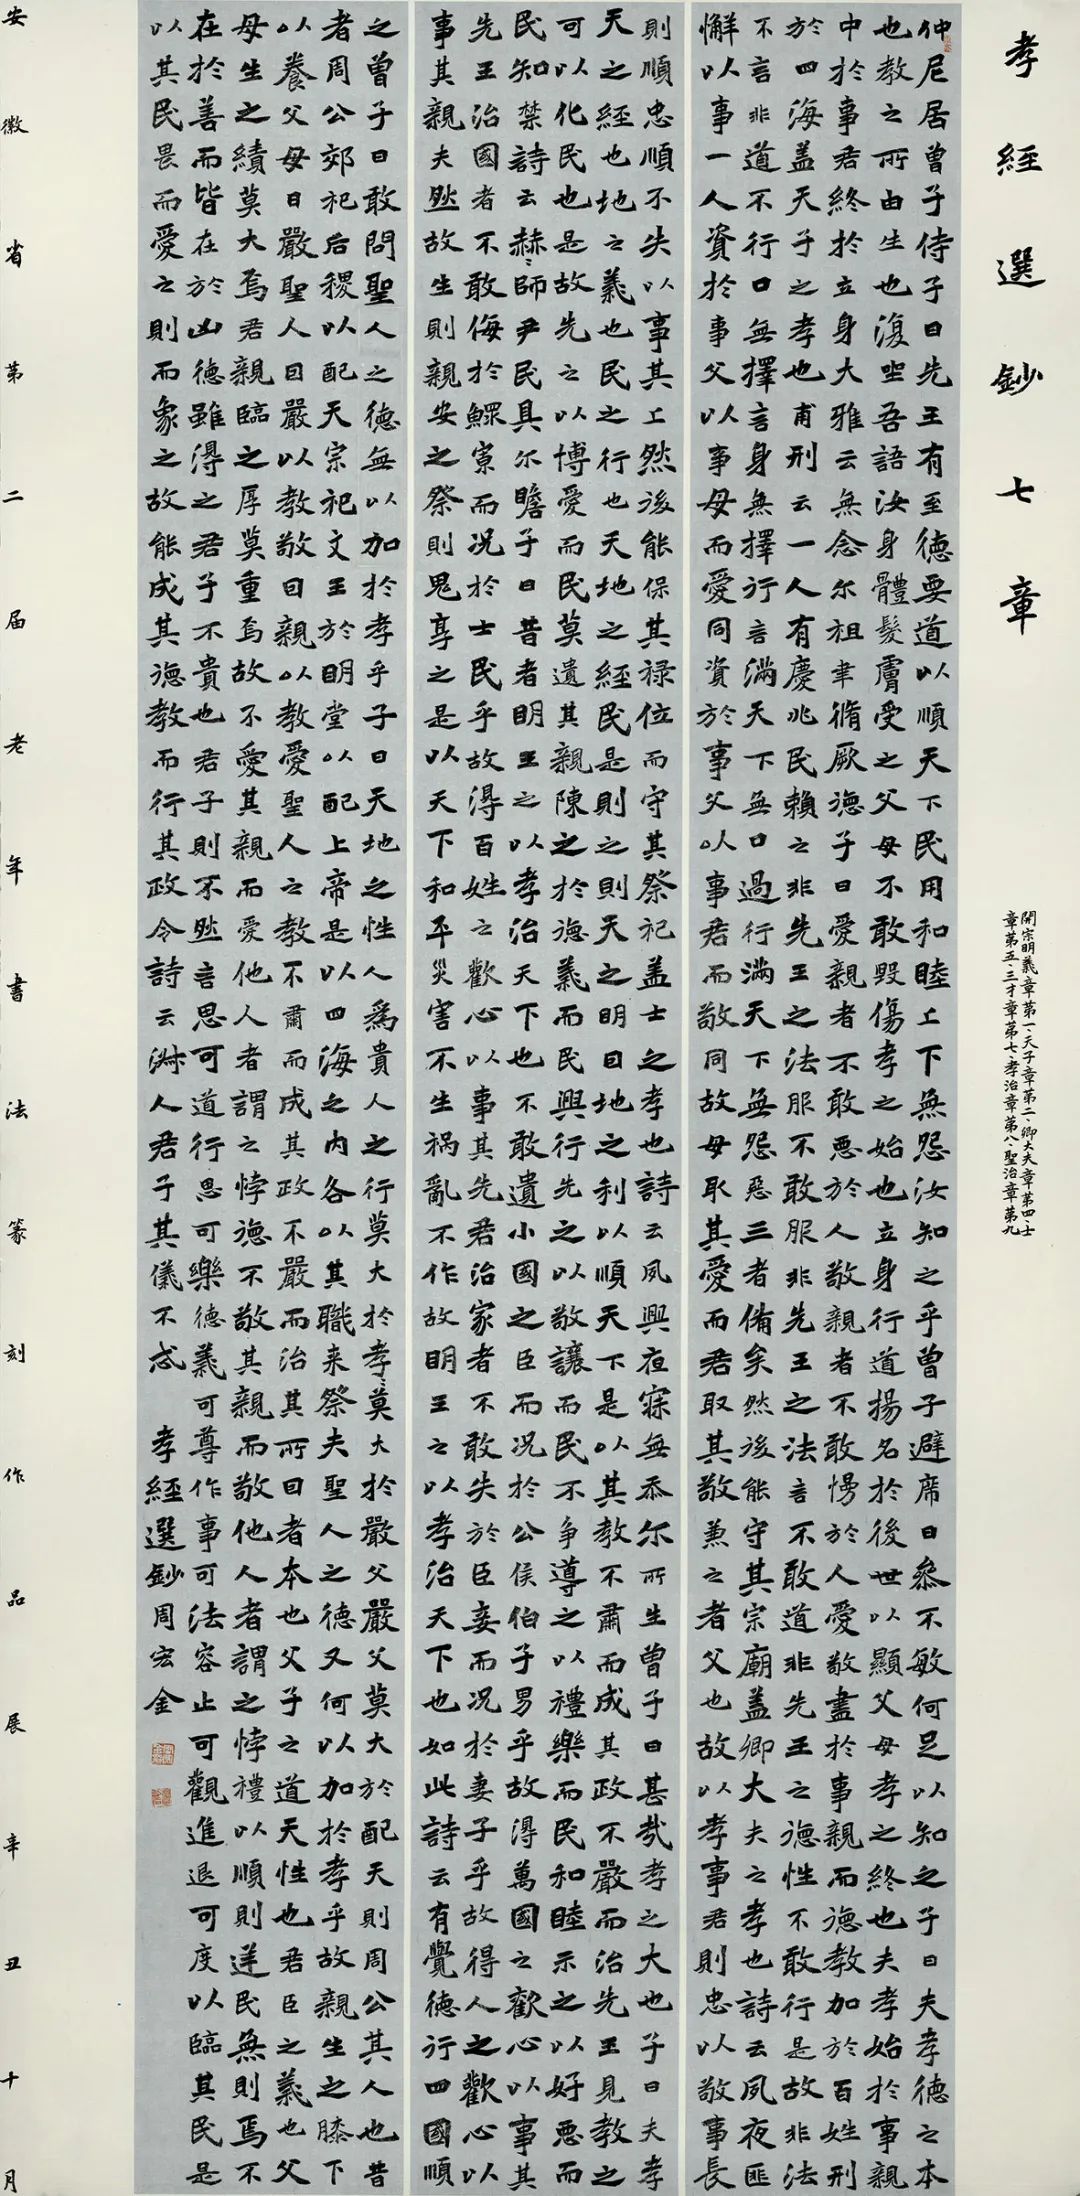 孝經選鈔七章
開宗明義章第一、天子章第二、卿大夫章第四、士
章第五、三才章第七、孝治章第八、聖治章第九
仲尼居曾子侍子曰先王有至德要道以順天下民用和睦上下無怨汝知之乎曾子避席曰參不敏何足以知之子曰夫孝德之本
也教之所由生也復坐吾語汝身體髮膚受之父母不敢毀傷孝之始也立身行道揚名於後世以顯父母孝之終也夫孝始於事親
中於事君終於立身大雅云無念尔祖聿脩厥德子曰愛親者不敢惡於人敬親者不敢慢於人愛敬盡於事親而德教加於百姓刑
於四海盖天子之孝也甫刑云一人有慶兆民賴之非先王之法服不敢服非先王之法言不敢道非先王之德性不敢行是故非法
不言非道不行口無擇言身無擇行言滿天下無口過行滿天下無怨惡三者備矣然後能守其宗廟盖卿大夫之孝也詩云夙夜匪
懈以事一人資於事父以事母而愛同資於事父以事君而敬同故母取其愛而君取其敬兼之者父也故以孝事君則忠以敬事長
則順忠順不失以事其上然後能保其祿位而守其祭祀盖士之孝也詩云夙興夜寐無忝尔所生曾子曰甚哉孝之大也子曰夫孝
天之經也地之義也民之行也天地之經民是則之則天之明因地之利以順天下是以其教不肅而成其政不嚴而治先王見教之
可以化民也是故先之以博愛而民莫遺其親陳之於德義而民興行先之以敬讓而民不争導之以禮樂而民和睦示之以好惡而
民知禁詩云赫〻師尹民具尔瞻子曰昔者明王之以孝治天下也不敢遺小國之臣而況於公侯伯子男乎故得萬國之歡心以事其
先王治國者不敢侮於鰥寡而況於士民乎故得百姓之歡心以事其先君治家者不敢失於臣妾而況於妻子乎故得人之歡心以
事其親夫然故生則親安之祭則鬼享之是以天下和平災害不生禍亂不作故明王之以孝治天下也如此詩云有覺德行四國順
之曾子曰敢問聖人之德無以加於孝乎子曰天地之性人為貴人之行莫大於孝〻莫大於嚴父嚴父莫大於配天則周公其人也昔
者周公郊祀后稷以配天宗祀文王於明堂以配上帝是以四海之內各以其職来祭夫聖人之德又何以加於孝乎故親生之膝下
以養父母日嚴聖人因嚴以教敬因親以教愛聖人之教不肅而成其政不嚴而治其所因者本也父子之道天性也君臣之義也父
母生之續莫大焉君親臨之厚莫重焉故不愛其親而愛他人者謂之悖德不敬其親而敬他人者謂之悖禮以順則逆民無則焉不
在於善而皆在於凶德雖得之君子不貴也君子則不然言思可道行思可樂德義可尊作事可法容止可觀進退可度以臨其民是
以其民畏而愛之則而象之故能成其德教而行其政令詩云淑人君子其儀不忒 孝經選鈔周宏金
安徽省第二届老年書法篆刻作品展辛丑十月